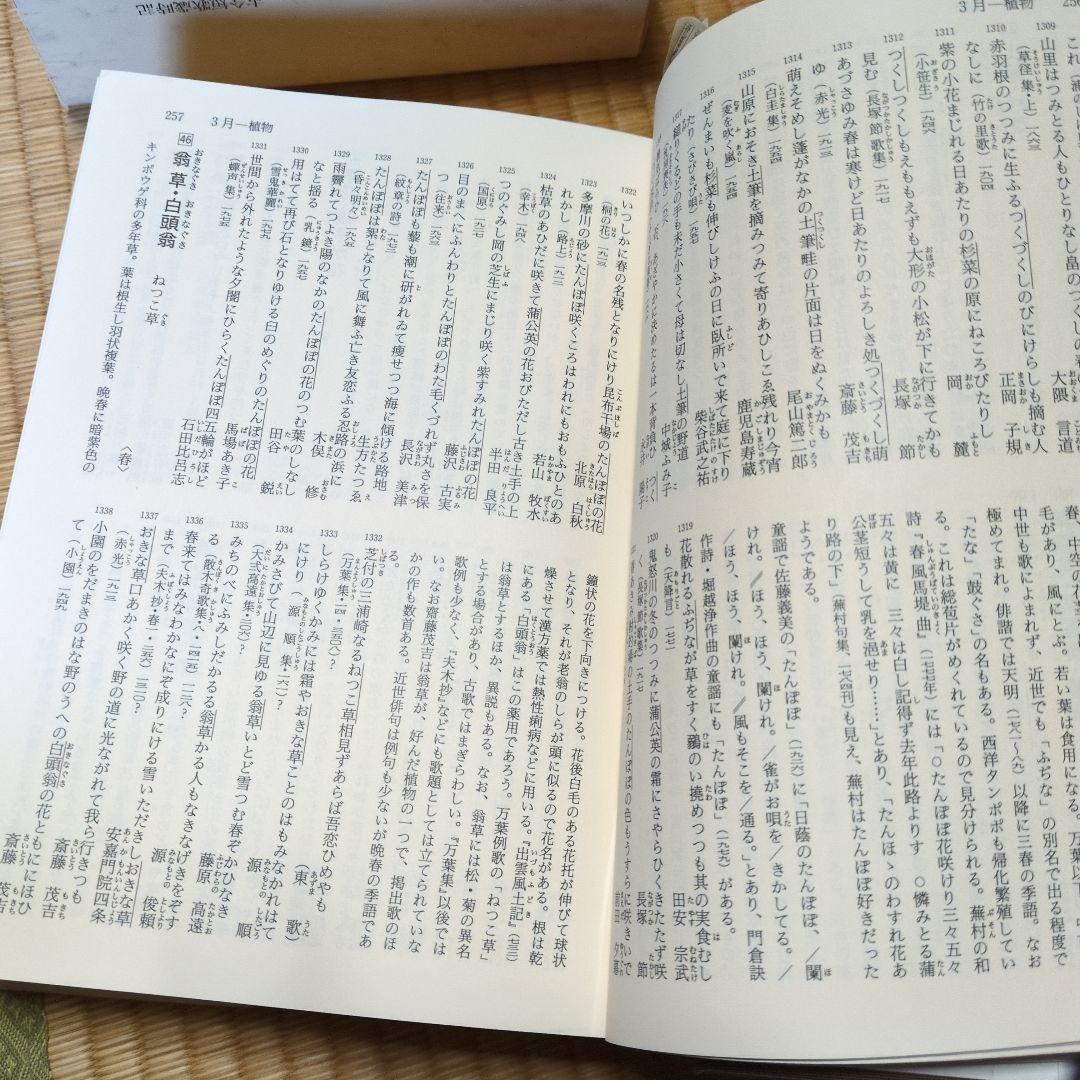 古今短歌歳時記
256 3月―植物
1309
山里はつみとる人もひとりなし畠の
（草径集・上）一八六三 大隈 言道
1310
赤羽根のつつみに生ふるつくづくしのびにけらしも摘む人
なしに（竹の里歌）一九〇四 正岡 子規
1311
紫の小花まじれる日あたりの杉菜の原にねころびたりし
（小笹生）一九四六 岡 麓
1312
つくしつくしもえももえずも大形の小松が下に行きてかも
見む（長塚節歌集） 長塚 節
1313
あづさゆみ春は寒けど日あたりのよろしき処つくづくし萌
ゆ（赤光）一九一三 斎藤 茂吉
1314
萌えそめし蓬がなかの土筆畦の片面は日をぬくみかも
（白圭集）一九五四 尾山篤二郎
1315
山原におそき土筆を摘みつみて寄りあひしこゑ残れり今宵
（麦を吹く嵐） 鹿児島寿蔵
1316
ぜんまいも杉菜も伸びしけふの日に臥所いで来て庭に下り
たり（さびさび唄） 柴谷武之祐
1317
縋りくるとの手も未だ小さくて母は切なし土筆の野道
中城ふみ子
春、中空の
毛があり、風にとぶ。若い葉は食用になる。万葉以下
中世も歌によまれず、近世でも「ふぢな」の別名で出る程度で
極めてまれ。俳諧では天明（一七八一～八九）以降に三春の季語。なお
「たな」「鼓ぐさ」の名もある。西洋タンポポも帰化繁殖してい
る。これは総苞片がめくれているので見分けられる。蕪村の和
詩『春風馬堤曲』（一七七七年）には「○たんぽぽ花咲けり三々五々
五々は黄に 三々は白し記得ず去年此路よりす ○憐みとる蒲
公茎短うして乳を浥せり……」とあり、「たんほゝのわすれ花あ
り路の下」（蕪村句集、一七八四刊）も見え、蕪村はたんぽぽ好きだった
ようである。
童謡で佐藤義美の「たんぽぽ」（一九三六）に「日蔭のたんぽぽ、／闌
けれ。／ほうほ、ほう、闌けれ。／雀がお唄を／きかしてる。／
／ほう、ほう、闌けれ。／風もそこを／通る。」とあり、門倉訣
作詩・堀越浄作曲の童謡にも「たんぽぽ」（一九七七）がある。
1319
花散れるふぢなが草をすく鷃のい撓めつつも其の実食むし
も（天降言） 田安 宗武
1320
鬼怒川の冬のつつみに蒲公英の霜にさやらひくきたたず咲
く（長塚節歌集）一九一七 長塚 節
257 3月―植物
1322
いつしかに春の名残となりにけり昆布干場のたんぽぽの花
（桐の花）一九一三 北原 白秋
1323
多摩川の砂にたんぽぽ咲くころはわれにもおもふひとのあ
れかし（路上）一九一一 若山 牧水
1324
枯草のあひだに咲きて蒲公英の花おびただし古き土手の上
（幸木）一九四八 半田 良平
1325
つのぐみし岡の芝生にまじり咲く紫すみれたんぽぽの花
（国原）一九二七 藤沢 古実
1326
目のまへにふんわりとたんぽぽのわた毛くづれず丸さを保
つ（往来） 長沢 美津
1327
たんぽぽも藜も潮に研がれゐて瘦せつつ海に傾ける路地
（紋章の詩） 生方たつゑ
1328
たんぽぽは絮となりて風に舞ふ亡き友恋ふる忍路の浜に
（昏々明々） 木俣 修
1329
雨霽れてつよき陽のなかのたんぽぽの花のつむ葉のしなし
なと揺る（乳鏡）一九五七 田谷 鋭
1330
用はてて再び石となりゆける臼のめぐりのたんぽぽの花
（雪鬼華麗）一九七九 馬場あき子
1331
世間から外れたような夕闇にひらくたんぽぽ四五輪がほど
（蟬声集）一九七五 石田比呂志
46 翁草・白頭翁 ねつこ草 〈春〉
キンポウゲ科の多年草。葉は根生し羽状複葉。晩春に暗紫色の
鐘状の花を下向きにつける。花後白毛のある花托が伸びて球状
となり、それが老翁のしらが頭に似るので花名がある。根は乾
燥させて漢方薬では熱性痢病などに用いる。『出雲風土記』（七三三）
にある「白頭翁」はこの薬用であろう。万葉例歌の「ねつこ草」
は翁草とするほか、異説もある。なお、翁草には松・菊の異名
とする場合があり、古歌ではまぎらわしい。『万葉集』以後では
歌例も少なく、『夫木抄』などにも歌題としては立てられていな
い。なお齋藤茂吉は翁草が、好んだ植物の一つで、掲出歌のほ
かの作も数首ある。近世俳句は例句も少ないが晩春の季語であ
る。
1332
芝付の三浦崎なるねつこ草相見ずあらば吾恋ひめやも
（万葉集・一四・三五〇八） （東歌）
1333
しらけゆくかみには霜やおきな草ことのはもみなかれはて
にけり（源順集・一六一） 源 順
1334
かみさびて山辺に見ゆる翁草いとど雪つむ春ぞかひなき
（大弐高遠集・二三六） 藤原 高遠
1335
みちのべにふみしだかるる翁草かる人もなきなげきをぞす
る（散木奇歌集・八・一四二三） 源 俊頼
1336
春来てはみなわかなにぞ成りにける雪いただきしおきな草
まで（夫木抄・春一・二三六） 安嘉門院四条
1337
おきな草口あかく咲く野の道に光ながれて我ら行きつも
（赤光）一九一三 斎藤 茂吉
1338
小園のをだまきのはな野のうへの白頭翁の花ともににほひ
て（小園）一九四九 斎藤 茂吉